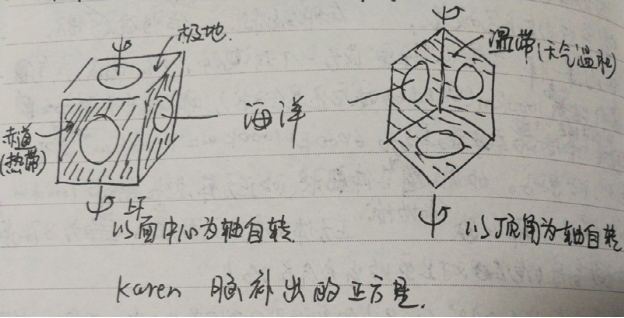 极地.
温带(天气温和)
海洋
赤道
(热带)
以上下
面中心为轴自转.
以顶角为轴自转
Karen 脑补出的正方星.